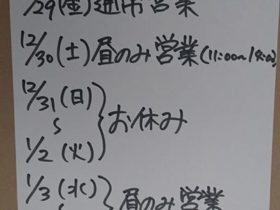 /29(金)通常営業
12/30(土)昼のみ営業(11:00〜
12/31(日)
〜 お休み
1/2(火)
1/3(水)
昼のみ営業